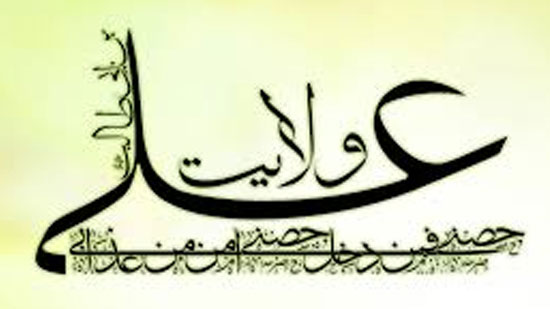 ولایت
علی
بن ابیطالب
حصنی فمن دخل حصنی امن من عذابی